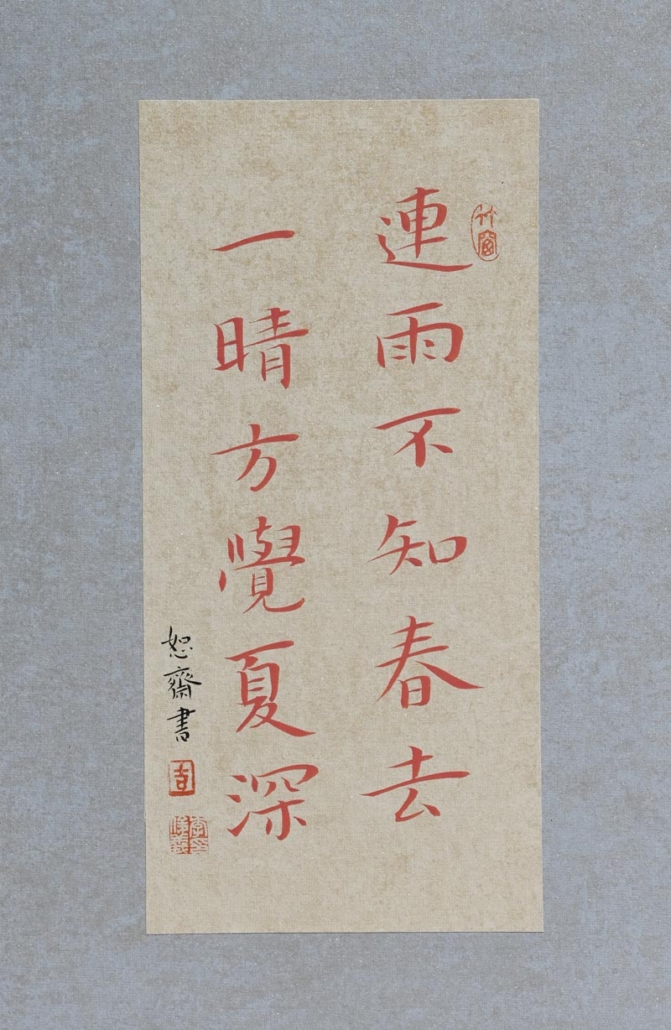 連雨不知春去
一晴方覺夏深
恕齋書